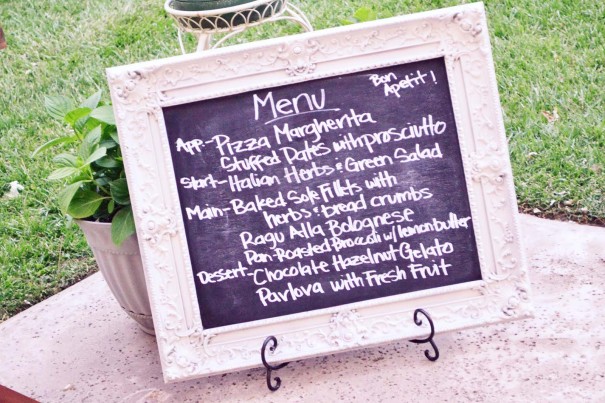 Menu
Bon
Apetit!
App.-Pizza Margherita
Stuffed Dates with prosciutto
Start-Italian Herbs & Green Salad
Main-Baked Sole Fillets with
herbs & bread crumbs
Ragu Alla Bolognese
Pan-Roasted Broccoli w/lemon butter
Dessert-Chocolate Hazelnut Gelato
Pavlova with Fresh Fruit